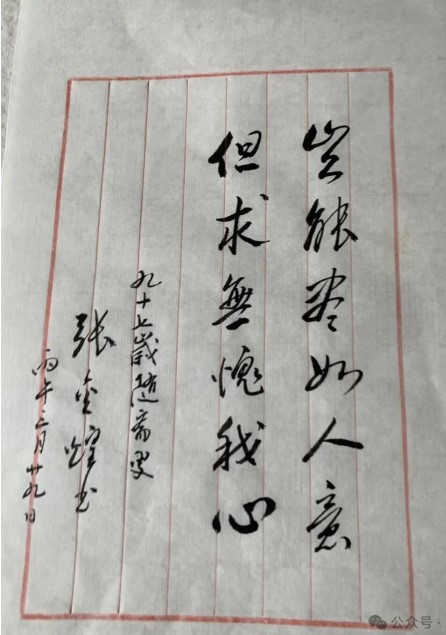 岂能尽如人意
但求無愧我心
九十七歲随斋叟
张金耀书
丙午三月廿九日
公众号·